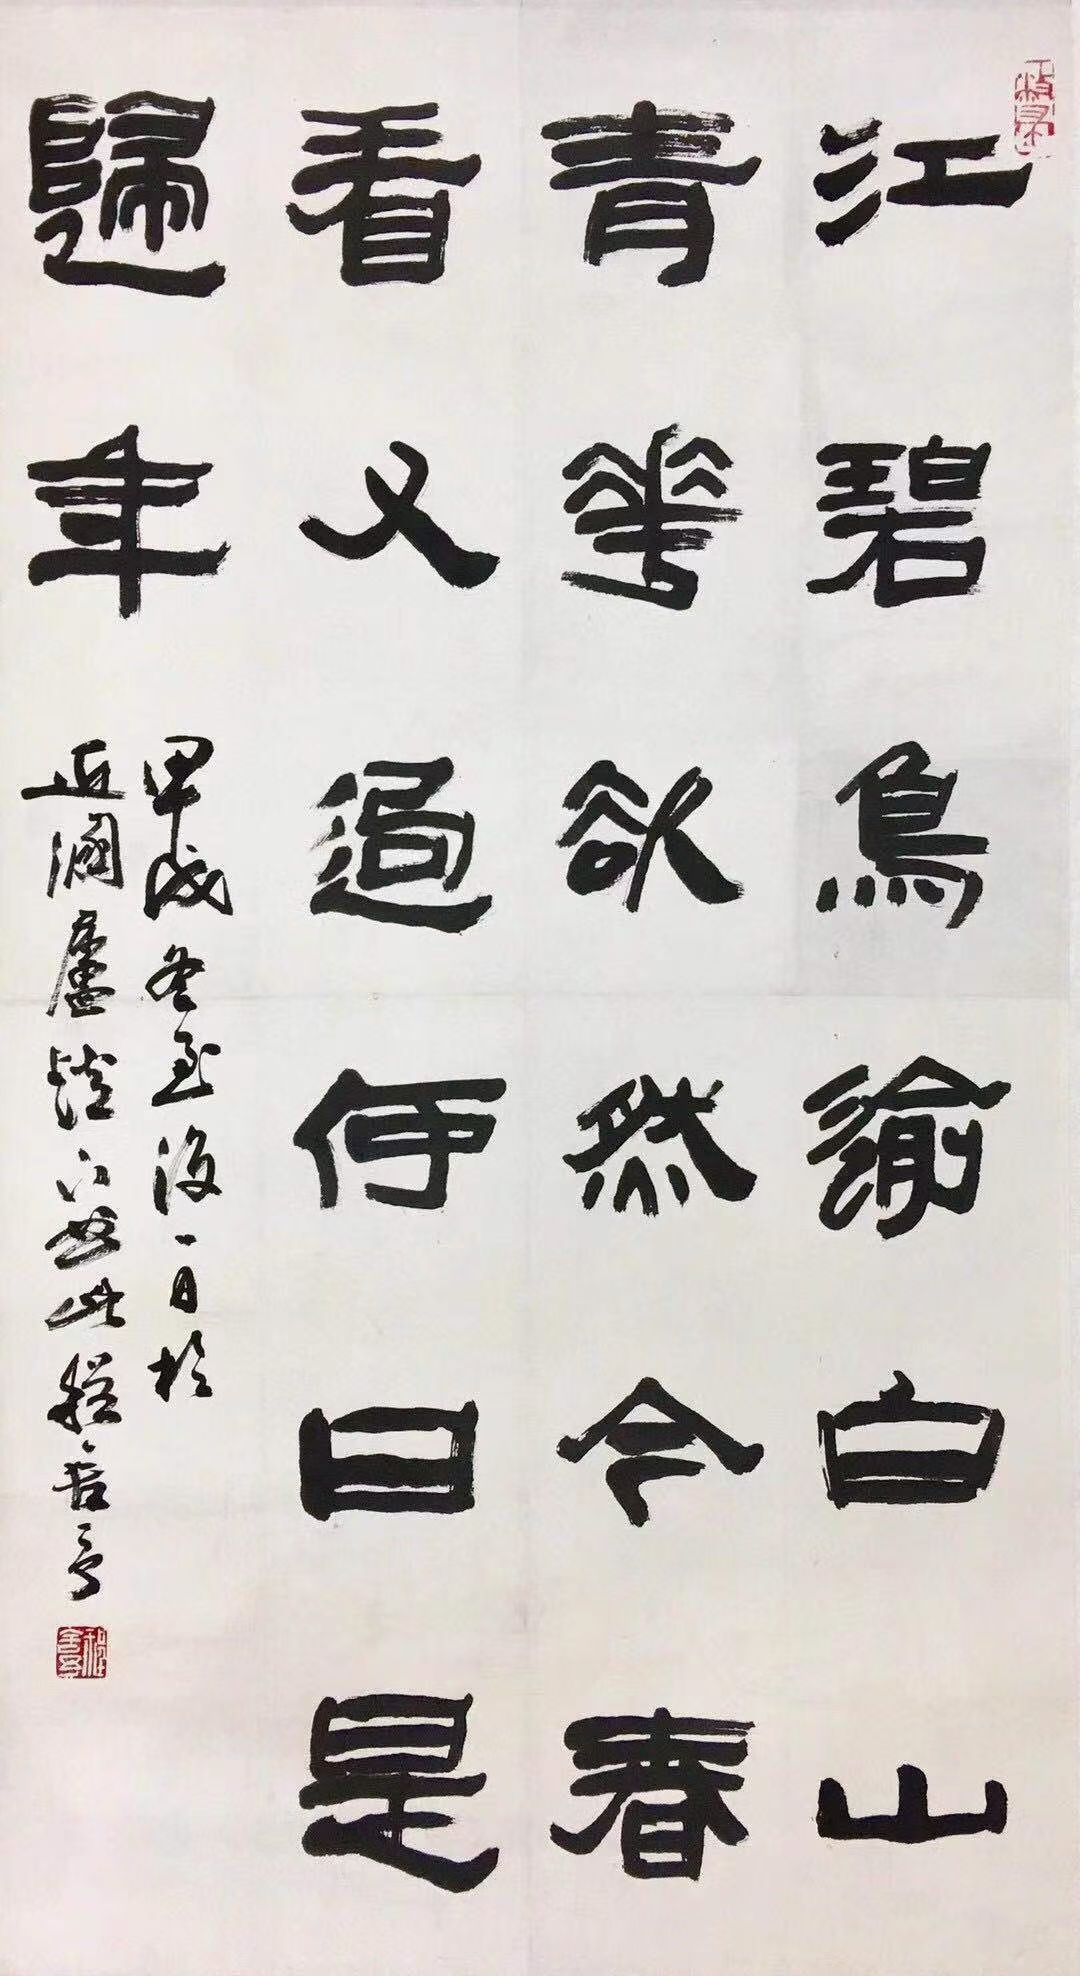 江碧鳥逾白山
青華欲然令春
看又過何日是
歸年
甲戌冬至後一日於
近潮廬燈下書此程善亨